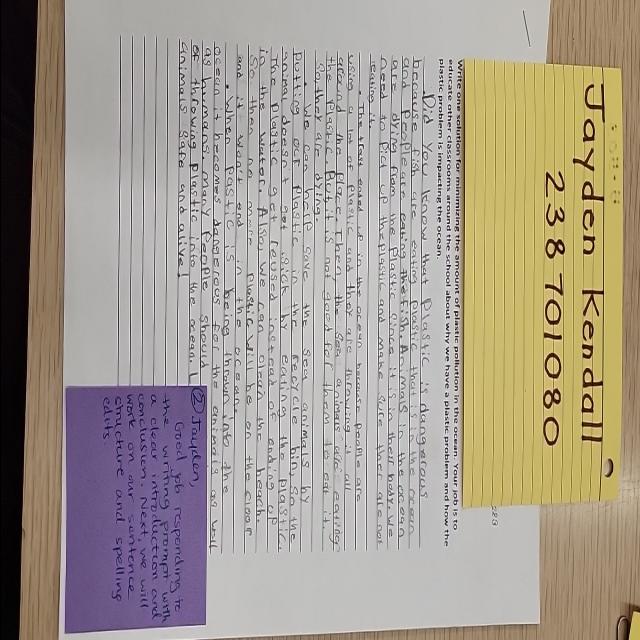 Jayden Kendall
238701080
Write one solution for minimizing the amount of plastic pollution in the ocean. Your job is to
educate other classrooms around the school about why we have a plastic problem and how the
plastic problem is impacting the ocean.
Did you know that Plastic is dangerous
because fish are eating plastic that is in the ocean
and people are eating the fish. Animals in the ocean
are dying from the plastic since it is in their body. We
need to pick up the plastic and make sure they are not
eating it.
in the ocean because people are
using a lot of plastic and they are throwing it all
around the place. Then the sea animals are eating
the plastic. But it is not good for them to eat it.
So, they are dying.
We can help save the sea animals by
putting our plastic in the recycle bin so the
animal doesn't get sick by eating the plastic.
The plastic get reused instead of ending up
in the water. Also, we can clean the beach.
So then no more plastic will be on the floor
and it won't end in the ocean.
When plastic is being thrown into the
ocean it becomes dangerous for the animals as well
as humans. many people should
of throwing plastic into the ocean.
animals safe and alive!
② Jayden,
Good job responding to
the writing prompt with
a clear introduction and
conclusion. Next, we will
work on our sentence
structure and spelling
edits